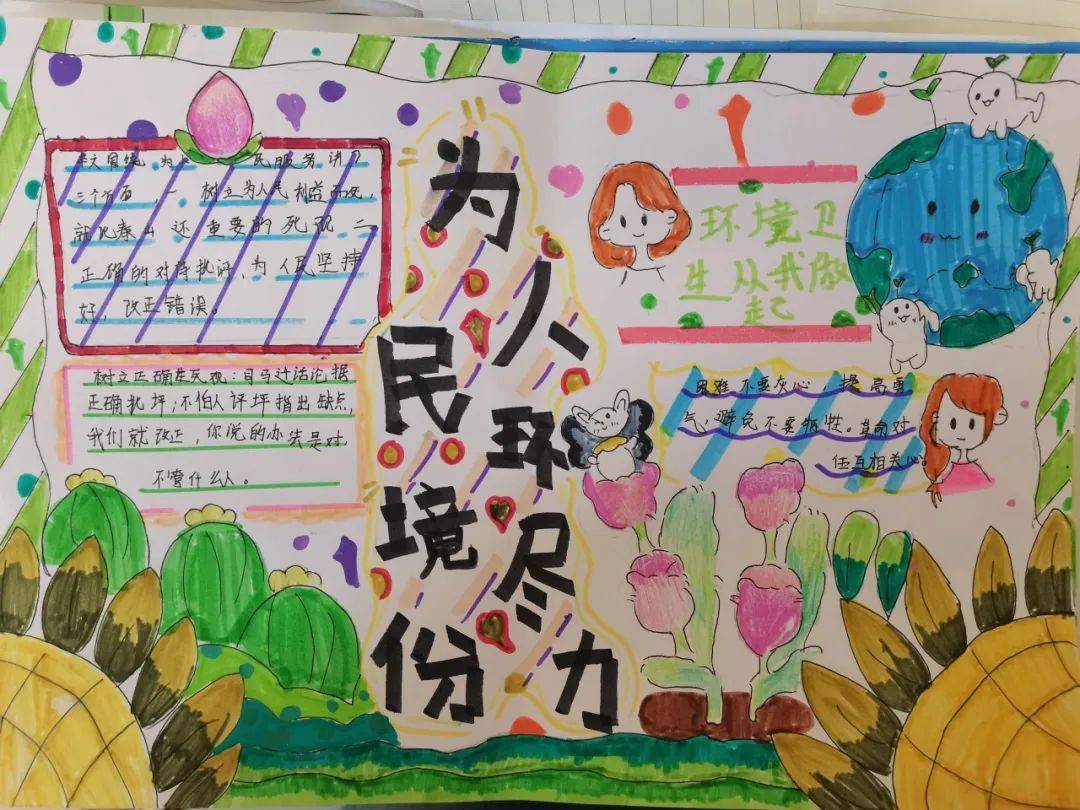 为人民环境尽份力
文围绕 为 民服务讲了
三个方面，一 树立为人民利益而死，
就比泰山还重要的死观二
正确的对待批评、为人民坚持
好，改正错误。
树立正确生死观：司马迁话论据
正确批坪；不怕人评坪指出缺点，
我们就改正，你说的办法是对，
不管什么人。
环境卫
生从我做
起
困难不要灰心，提高勇
气，避免不要牺牲。对
伍互相关心